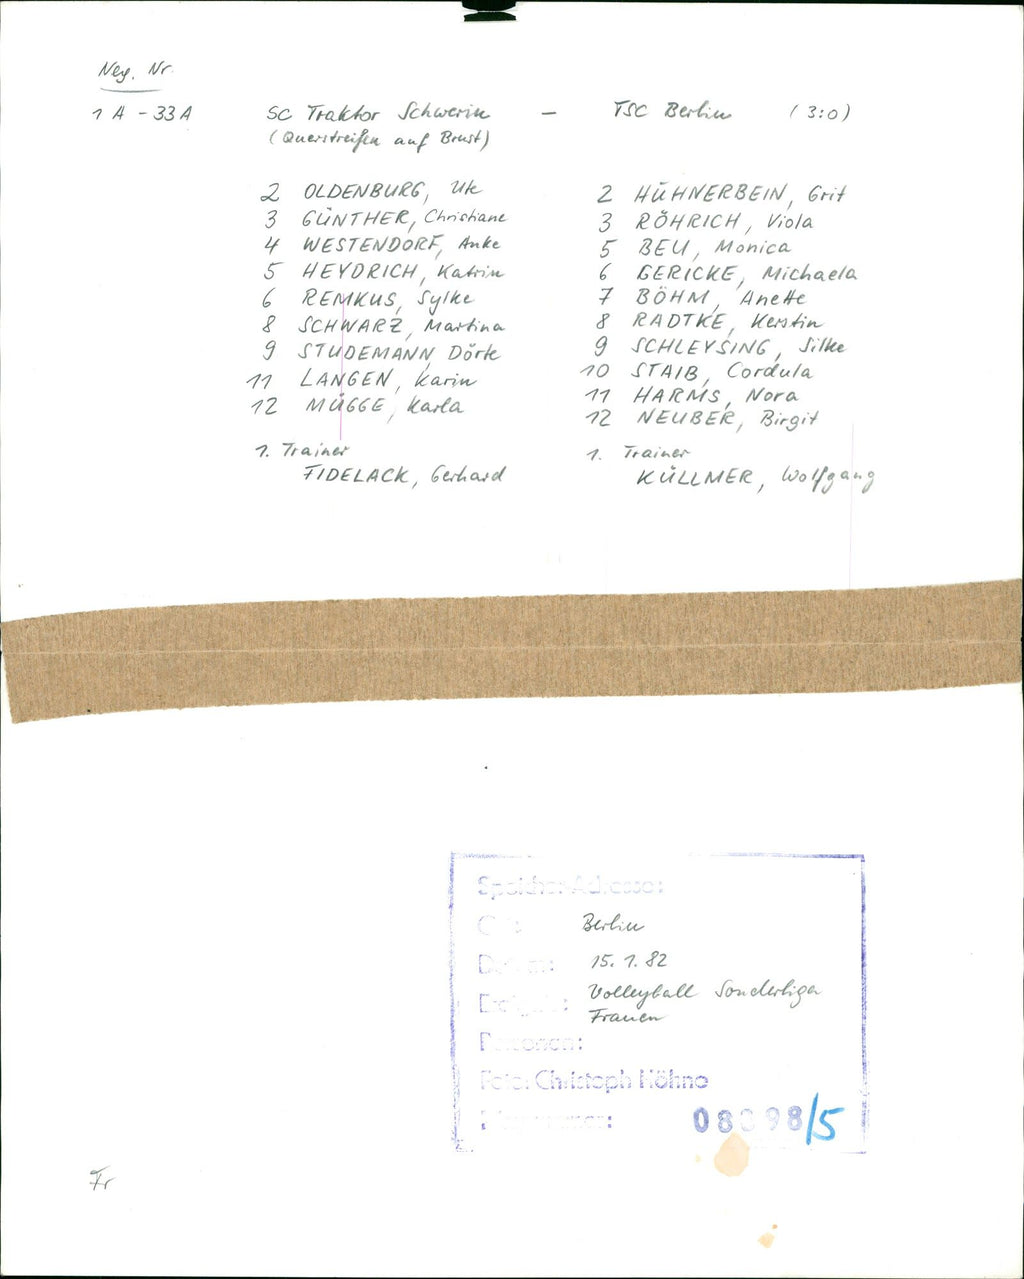 Neg. Nr.
1 A - 33 A SC Traktor Schwerin — TSC Berlin (3:0)
(Querstreifen auf Brust)
2 OLDENBURG, Ute 2 HÜHNERBEIN, Grit
3 GÜNTHER, Christiane 3 RÖHRICH, Viola
4 WESTENDORF, Anke 5 BEU, Monica
5 HEYDRICH, Katrin 6 GERICKE, Michaela
6 REMKUS, Sylke 7 BÖHM, Anette
8 SCHWARZ, Martina 8 RADTKE, Kerstin
9 STUDEMANN, Dörte 9 SCHLEYSING, Silke
11 LANGEN, Karin 10 STAIB, Cordula
12 MÜGGE, Karla 11 HARMS, Nora
12 NEUBER, Birgit
1. Trainer 1. Trainer
FIDELACK, Gerhard KÜLLMER, Wolfgang
Speicher-Adresse:
Berlin
Datum: 15.1.82
Ereignis: Volleyball Sonderliga
Frauen
Personen:
Foto: Christoph Höhne
/5
Fr